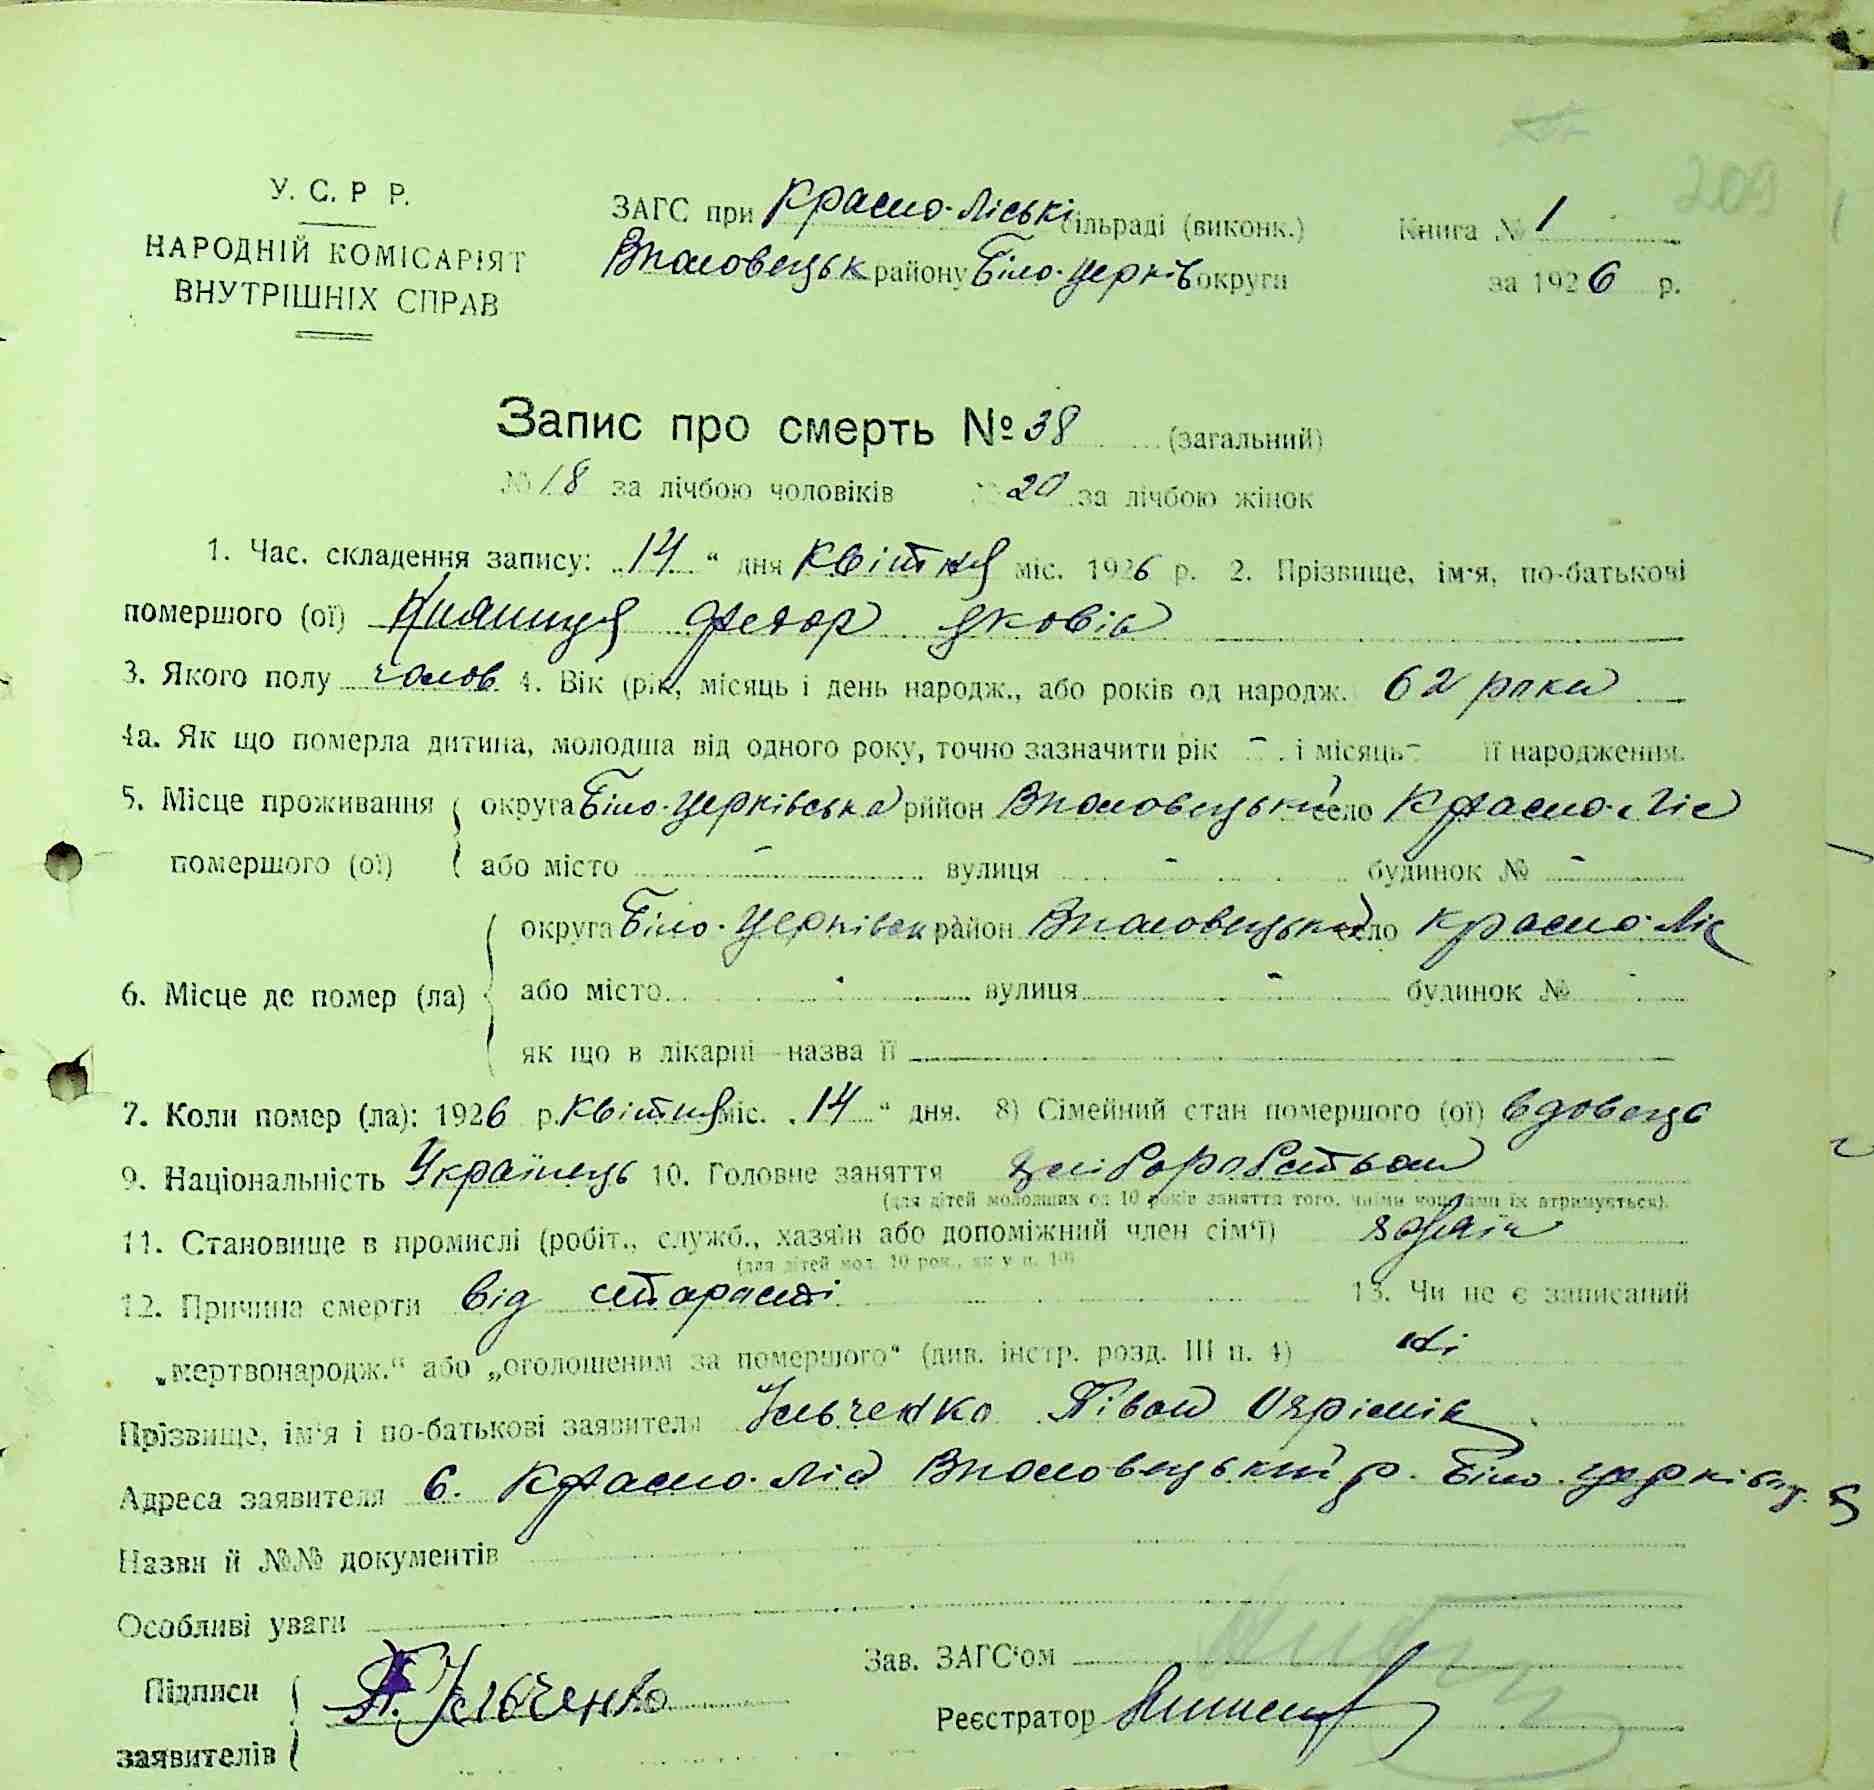 209
У. С. Р Р.
НАРОДНІЙ КОМІСАРІЯТ
ВНУТРІШНІХ СПРАВ
ЗАГС при Красно-Ліські сільраді (виконк.)
района Біло-Церків округи
Книга № 1
за 1926 р.
Запис про смерть № 38 (загальний)
№ 18 за лічбою чоловіків № 20 за лічбою жінок
1. Час. складення запису: „14“ дня Квітня міс. 1926 р. 2. Прізвище, ім'я, по-батькові
помершого (ої) Федор Яковів
3. Якого полу чолов. 4. Вік (рік, місяць і день народж., або років од народж. 62 роки
4а. Як що померла дитина, молодша від одного року, точно зазначити рік - і місяць - її народження.
5. Місце проживання округа Біло-Церківська рийон село Красно-Ліс
помершого (ої) або місто - вулиця - будинок № -
6. Місце де помер (ла) округа Біло-Церківськ район село Красно-Ліс
або місто - вулиця - будинок № -
як що в лікарні—назва її
7. Коли помер (ла): 1926 р. Квітня міс. „14“ дня. 8) Сімейний стан помершого (ої) вдовець
9. Національність Українець 10. Головне заняття
(для дітей молодших од 10 років заняття того, чиїми коштами їх втримується).
11. Становище в промислі (робіт., служб., хазяїн або допоміжний член сім'ї)
(для дітей мол. 10 рок., як у п. 10)
12. Причина смерти від старости 13. Чи не є записаний
„мертвонародж.“ або „оголошеним за помершого“ (див. інстр. розд. III п. 4) ні
Прізвище, ім'я і по-батькові заявителя Ільченко
Адреса заявителя с. Красно-Ліс р. Біло-Церківськ.
Назви й №№ документів
Особливі уваги
Підписи
заявителів
Ільченко
Зав. ЗАГС'ом
Реєстратор